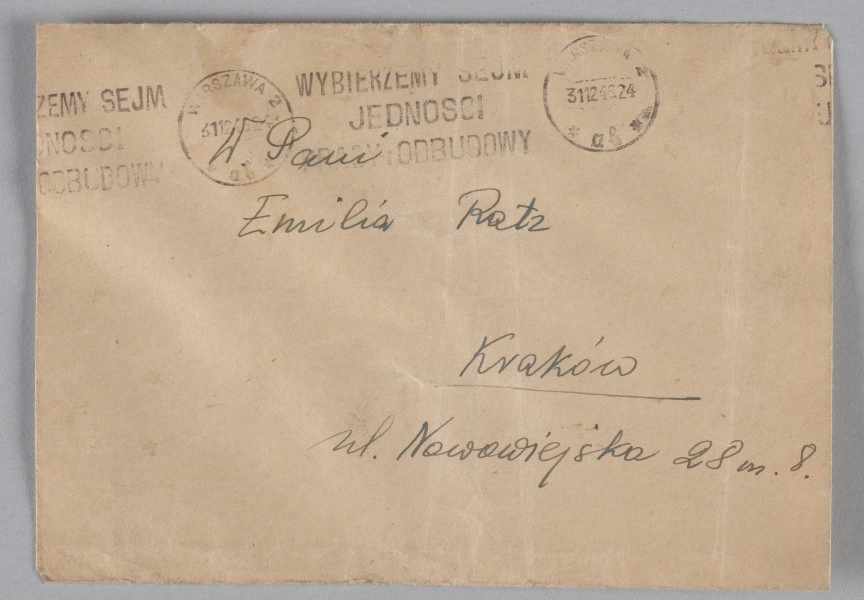 WYBIERZEMY SEJM
JEDNOŚCI
PRACY i ODBUDOWY
ZEMY SEJM
NOŚCI
ODBUDOWY
WARSZAWA 2
31 12 46.24
a g
WARSZAWA 2
31 12 46.24
W Pani
Emilia Ratz
Kraków
ul. Nowowiejska 28 m. 8.